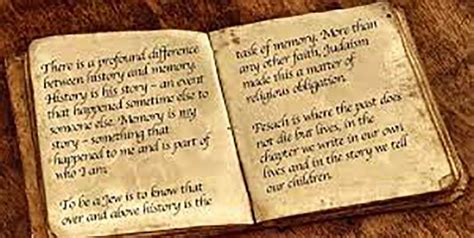 There is a profound difference
between history and memory.
History is his story – an event
that happened sometime else to
someone else. Memory is my
story – something that
happened to me and is part of
who I am.
To be a Jew is to know that
over and above history is the
task of memory. More than
any other faith, Judaism
made this a matter of
religious obligation.
Pesach is where the past does
not die but lives, in the
chapter we write in our own
lives and in the story we tell
our children.